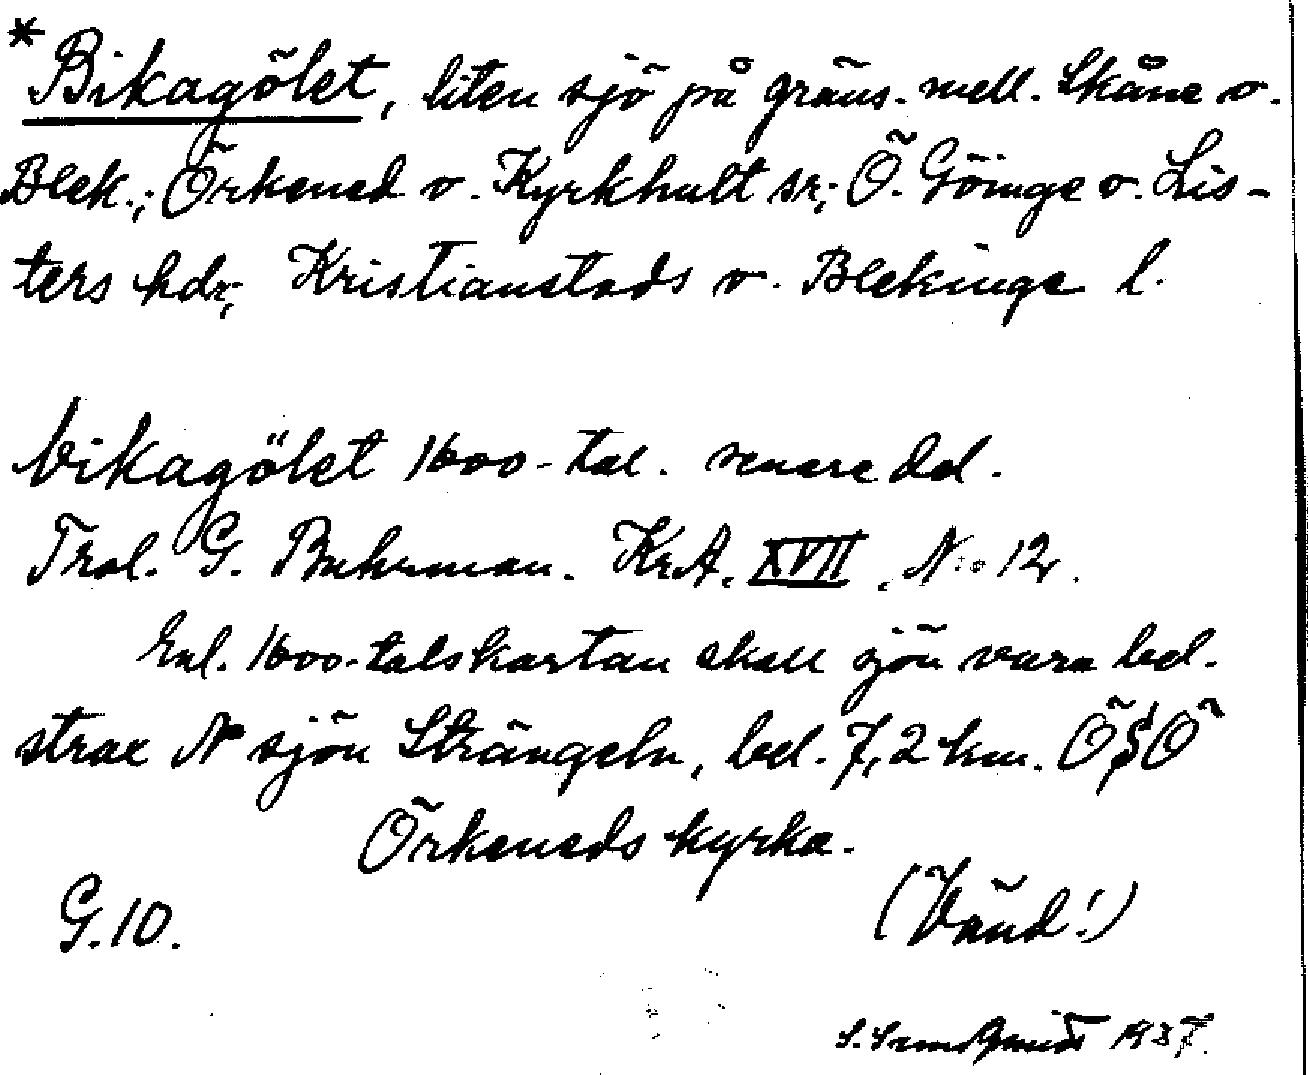 *Bikagölet, liten sjö på gräns. mell. Skåne o.
Blek.; Örkened o. Kyrkhult sr; Ö. Göinge o. Lis-
ters hdr; Kristianstads o. Blekinge l.
bikagölet 1600-tal. senare del.
Trol. G. Buhrman. KrA. XVII, No 12.
Enl. 1600-talskartan skall sjön vara bel.
strax N sjön Strängeln, bel. 7,2 km. ÖSÖ
Örkeneds kyrka.
G.10.
(Vänd!)
S. 1937.